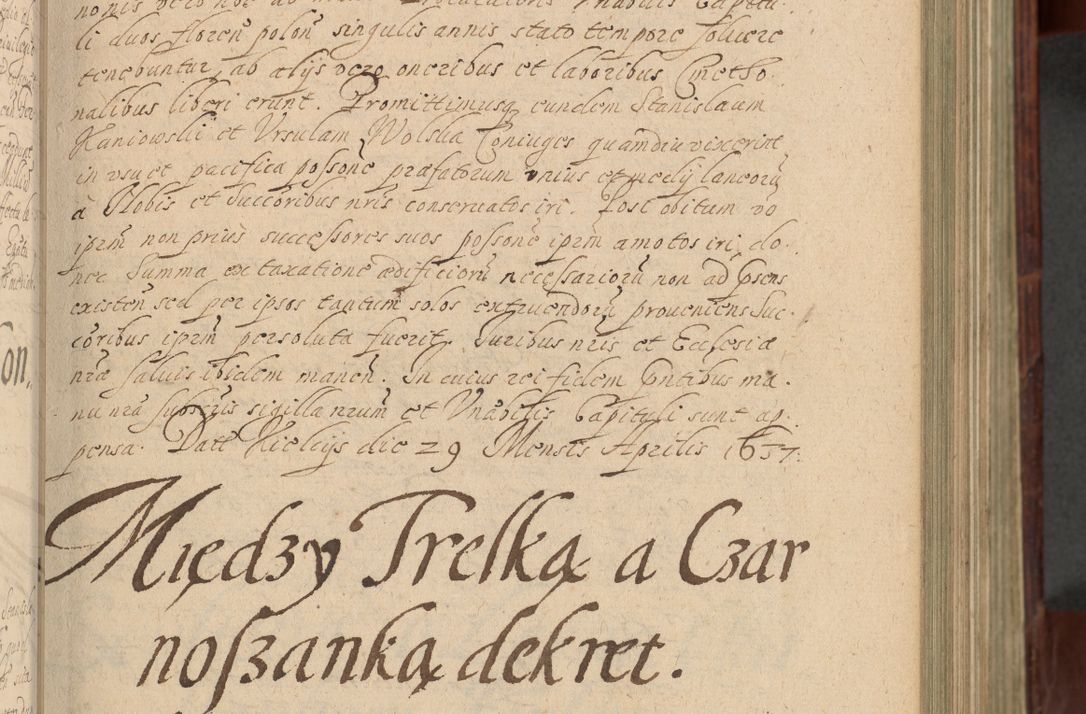 li duos floren̄ polon̄ singulis annis stato tempore soluere
tenebuntur, ab alijs vero oneribus et laboribus Cmetho
nalibus liberi erunt. Promittimusq́ eundem Stanislaum
Haniowski et Vrsulam Wolska Coniuges quamdiu vixerint
in vsu et pacifica possone præfatorum vnius et medij laneorū
à Nobis et Succoribus nris conseruatos iri. Post obitum vo
iprm̄ non priús successores suos possone iprm̄ amotos iri, do.
nec Summa ex taxatione ædificiorū necessariorū non ad p̄sens
existen̄ sed per ipsos tantum solos extruendorū proueniens Suc.
coribus iprm̄ persoluta fuerit. Iuribus nris et Ecclesiæ
nræ saluis ibidem manen̄. In cuius rei fidem p̄ntibus ma.
nu nrā subscris sigilla nrum et Vnabilis Capituli sunt ap.
pensa. Datt Kielcijs die 29 Mensis Aprilis 1657.
Między Trelką a Czar
noszanką dekret.